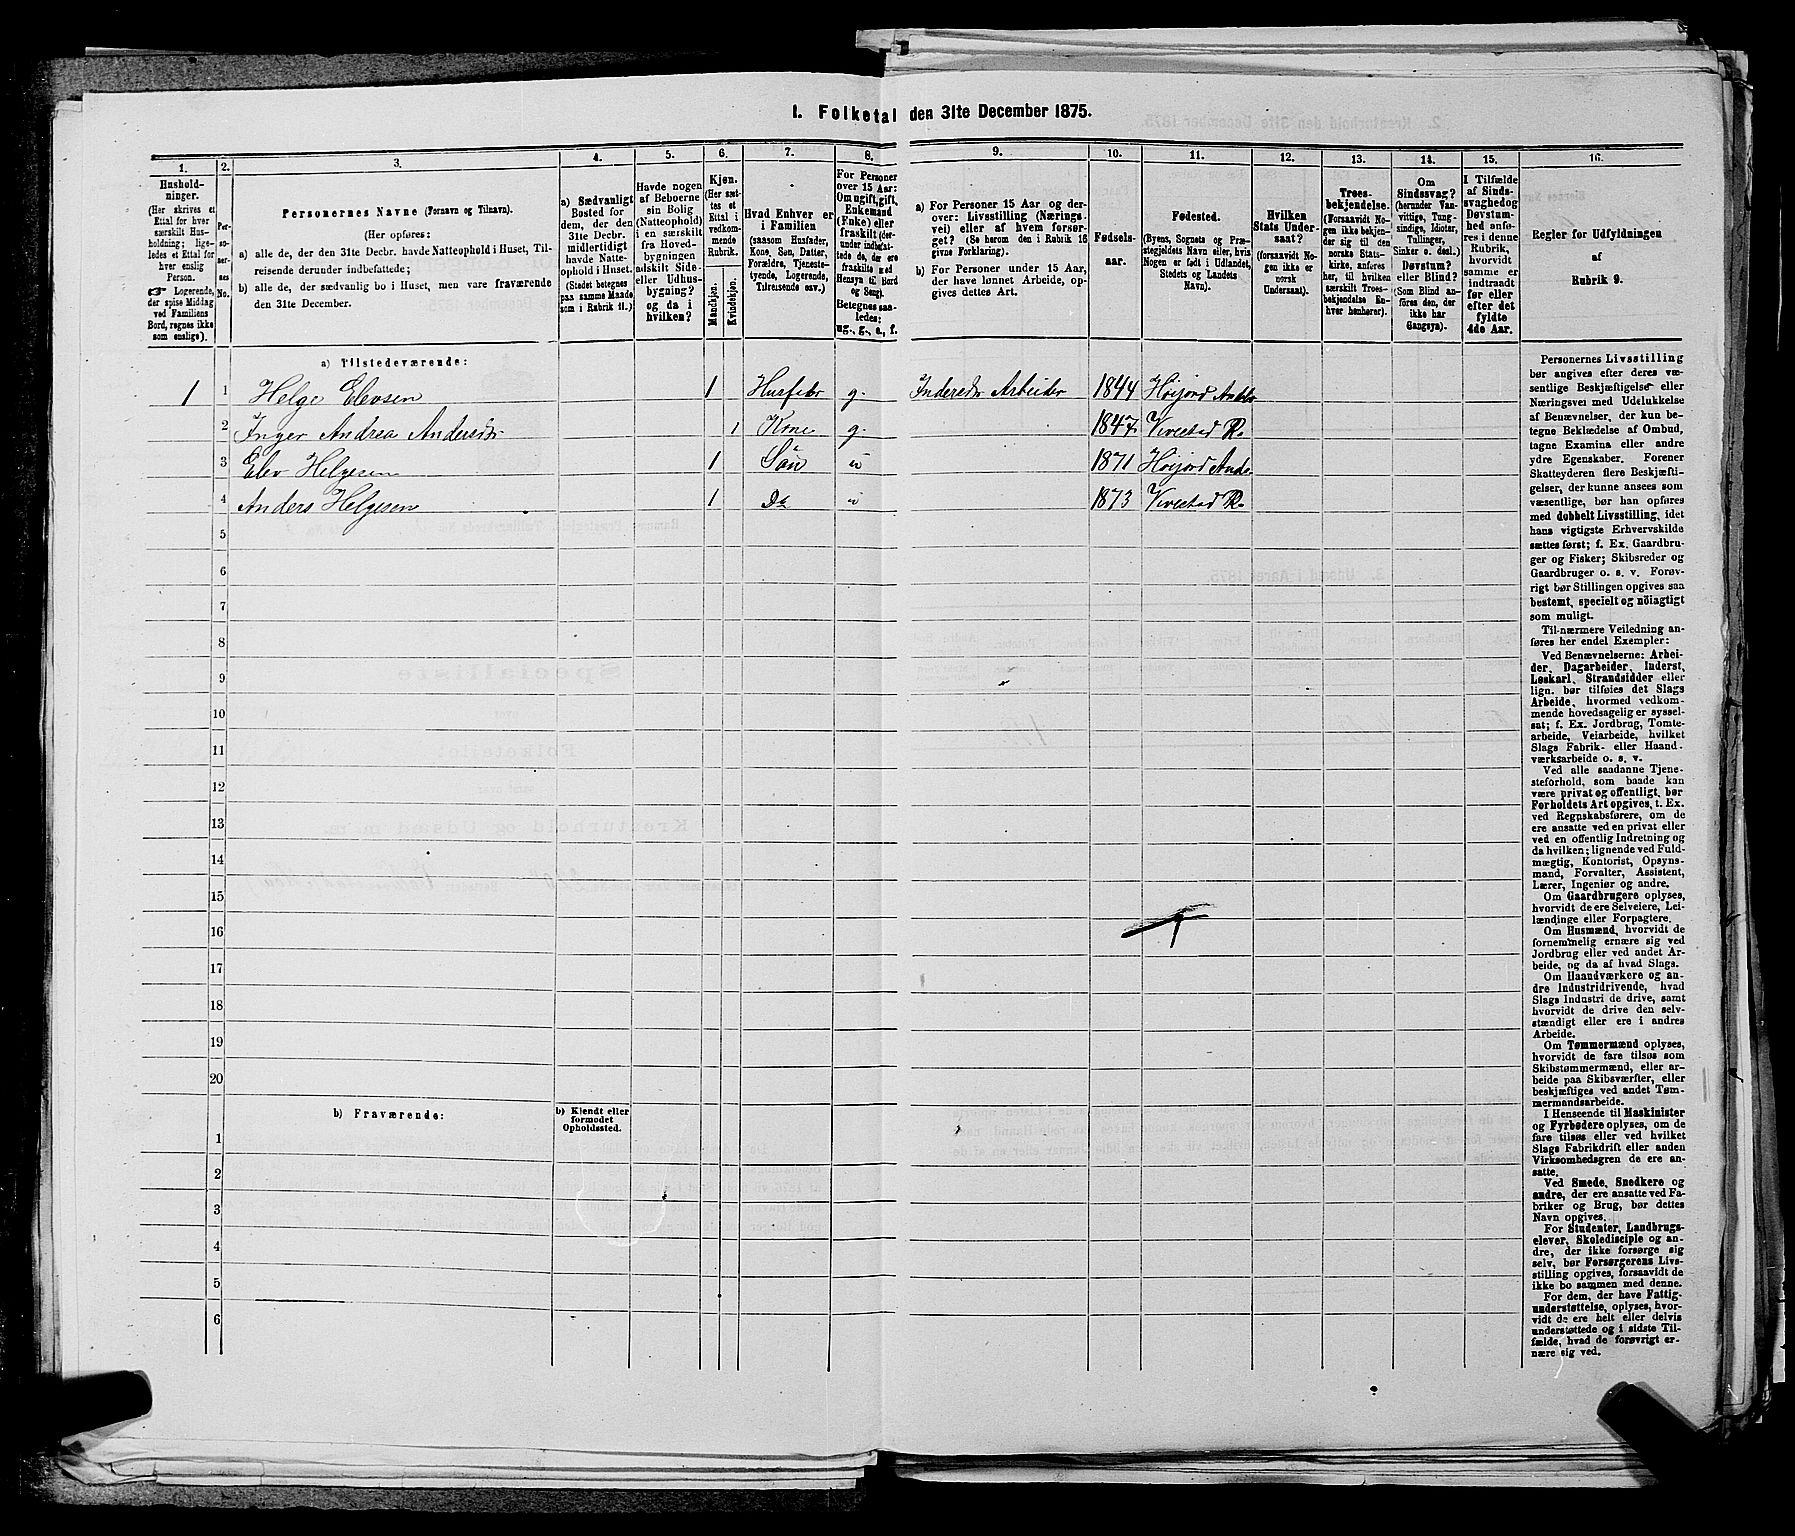 1. Folketal den 31te December 1875.
1.
2.
3.
4.
5.
6.
7.
8.
9.
10.
11.
12.
13.
14.
15.
16.
Hushold-
ninger.
(Her skrives et
Ettal for hver
særskilt Hus-
holdning; lige-
ledes et Ettal for
hver enslig
Person.
☞ Logerende,
der spise Middag
ved Familiens
Bord, regnes ikke
som enslige).
Per-
so-
ner-
nes
No.
Personernes Navne (Fornavn og Tilnavn).
(Her opføres:
a) alle de, der den 31te Decbr. havde Natteophold i Huset, Til-
reisende derunder indbefattede;
b) alle de, der sædvanlig bo i Huset, men vare fraværende
den 31te December.
a) Sædvanligt
Bosted for
dem, der den
31te Decbr.
midlertidigt
havde Natte-
ophold i Huset.
(Stedet betegnes
paa samme Maade
som i Rubrik 11.)
Havde nogen
af Beboerne
sin Bolig
(Natteophold)
i en særskilt
fra Hoved-
bygningen
adskilt Side-
eller Udhus-
bygning?
og da i
hvilken?
Kjøn.
(Her sæt-
tes et
Ettal i
vedkom-
mende
Rubrik.
Mandkjøn.
Kvindekjøn.
Hvad Enhver er
i Familien
(saasom Husfader,
Kone, Søn, Datter,
Forældre, Tjeneste-
tyende, Logerende,
Tilreisende osv.)
For Personer
over 15 Aar:
Om ugift, gift,
Enkemand
(Enke) eller
fraskilt (der-
under indbefat-
tede de, der ere
fraskilte med
Hensyn til Bord
og Seng).
Betegnes saa-
ledes:
ug., g., e., f.
a) For Personer 15 Aar og der-
over: Livsstilling (Nærings-
vei) eller af hvem forsør-
get? (Se herom den i Rubrik 16
givne Forklaring).
b) For Personer under 15 Aar,
der have lønnet Arbeide, op-
gives dettes Art.
Fødsels-
aar.
Fødested.
(Byens, Sognets og Præ-
stegjeldets Navn eller, hvis
Nogen er født i Udlandet,
Stedets og Landets
Navn).
Hvilken
Stats Under-
saat?
(forsaavidt No-
gen ikke er
norsk
Undersaat).
Troes-
bekjendelse.
(Forsaavidt No-
gen ikke bekjen-
der sig til den
norske Stats-
kirke, anføres
her, til hvilken
særskilt Troes-
bekjendelse En-
hver henhører).
Om
Sindssvag?
(herunder Van-
vittige, Tung-
sindige, Idioter,
Tullinger,
Sinker o. desl.)
Døvstum?
eller Blind?
(Som Blind an-
føres den, der
ikke har
Gangsyn).
I Tilfælde
af Sinds-
svaghed og
Døvstum-
hed anføres
i denne
Rubrik,
hvorvidt
samme er
indtraadt
før eller
efter det
fyldte
4de Aar.
Regler for Udfyldningen
af
Rubrik 9.
a) Tilstedeværende:
1 1 Helge Elevsen 1 Husfader g. Inderst Arbeider 1844 Høijord
2 Inger Andrea Andersdr 1 Kone g. 1847 Vivestad R.
3 Elev Helgesen 1 Søn u 1871 Høijord Ande
4 Anders Helgesen 1 Do u 1873 Vivestad R.
5
6
7
8
9
10
11
12
13
14
15
16
17
18
19
20
b) Fraværende:
b) Kjendt eller
formodet
Opholdssted.
1
2
3
4
5
6
Personernes Livsstilling
bør angives efter deres væ-
sentlige Beskjæftigelse eller
Næringsvei med Udelukkelse
af Benævnelser, der kun be-
tegne Beklædelse af Ombud,
tagne Examina eller andre
ydre Egenskaber. Forener
Skatteyderen flere Beskjæfti-
gelser, der kunne ansees som
væsentlige, bør han opføres
med dobbelt Livsstilling, idet
hans vigtigste Erhvervskilde
sættes først; f. Ex. Gaardbru-
ger og Fisker; Skibsreder og
Gaardbruger o. s. v. Forøv-
rigt bør Stillingen opgives saa
bestemt, specielt og nöiagtigt
som muligt.
Til nærmere Veiledning an-
føres her endel Exempler:
Ved Benævnelserne: Arbei-
der, Dagarbeider, Inderst,
Løskarl, Strandsidder eller
lign. bør tilføies det Slags
Arbeide, hvormed vedkom-
mende hovedsagelig er syssel-
sat; f. Ex. Jordbrug, Tomte-
arbeide, Veiarbeide, hvilket
Slags Fabrik- eller Haand-
værksarbeide o. s. v.
Ved alle saadanne Tjene-
steforhold, som baade kan
være privat og offentligt, bør
Forholdets Art opgives, t. Ex.
ved Regnskabsførere, om de
ere ansatte ved en privat eller
ved en offentlig Indretning og
da hvilken; lignende ved Fuld-
mægtig, Kontorist, Opsyns-
mand, Forvalter, Assistent,
Lærer, Ingeniør og andre.
Om Gaardbrugere oplyses,
hvorvidt de ere Selveiere, Lei-
lændinge eller Forpagtere.
Om Husmænd, hvorvidt de
fornemmelig ernære sig ved
Jordbrug eller ved andet Ar-
beide, og da af hvad Slags.
Om Haandværkere og an-
dre Industridrivende, hvad
Slags Industri de drive, samt
hvorvidt de drive den selv-
stændigt eller ere i andres
Arbeide.
Om Tømmermænd oplyses,
hvorvidt de fare tilsøs som
Skibstømmermænd, eller ar-
beide paa Skibsværfter, eller
beskjæftiges ved andet Tøm-
mermandsarbeide.
I Henseende til Maskinister
og Fyrbødere oplyses, om de
fare tilsøs eller ved hvilket
Slags Fabrikdrift eller anden
Virksomhedsgren de ere an-
satte.
Ved Smede, Snedkere og
andre, der ere ansatte ved Fa-
briker og Brug, bør dettes
Navn opgives.
For Studenter, Landbrugs-
elever, Skoledisciple og an-
dre, der ikke forsørge sig
selv, bør Forsørgerens Livs-
stilling opgives, forsaavidt de
ikke bo sammen med denne.
For dem, der have Fattig-
understøttelse, oplyses, hvor-
vidt de ere helt eller delvis
understøttede og i sidste Til-
fælde, hvad de forøvrigt er-
nære sig ved.